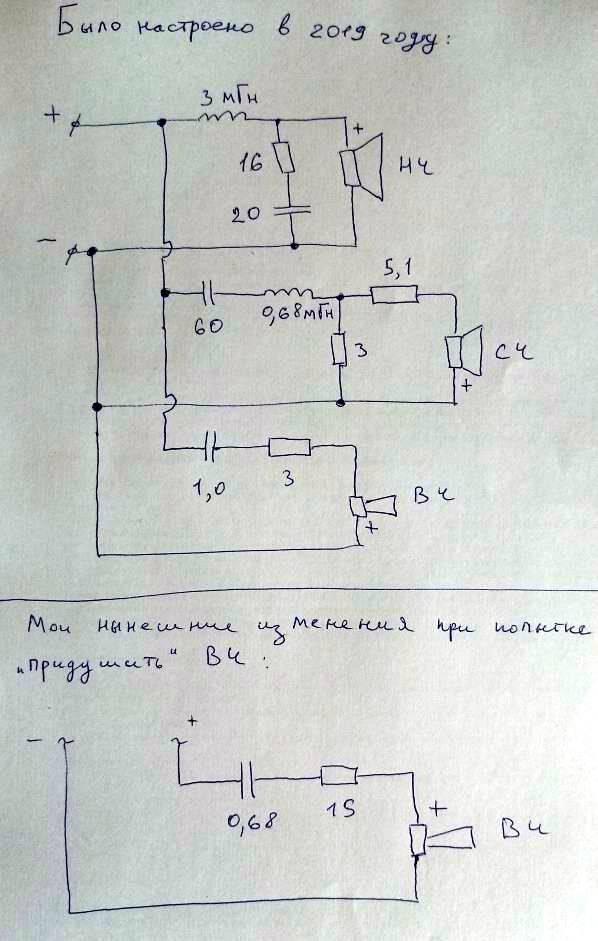 Было настроено в 2019 году:
3 мГн
+
+
16
НЧ
20
−
5,1
60
0,68мГн
3
СЧ
+
1,0
3
ВЧ
+
Мои нынешние изменения при попытке
„придушить“ ВЧ:
−
+
0,68
15
+
ВЧ